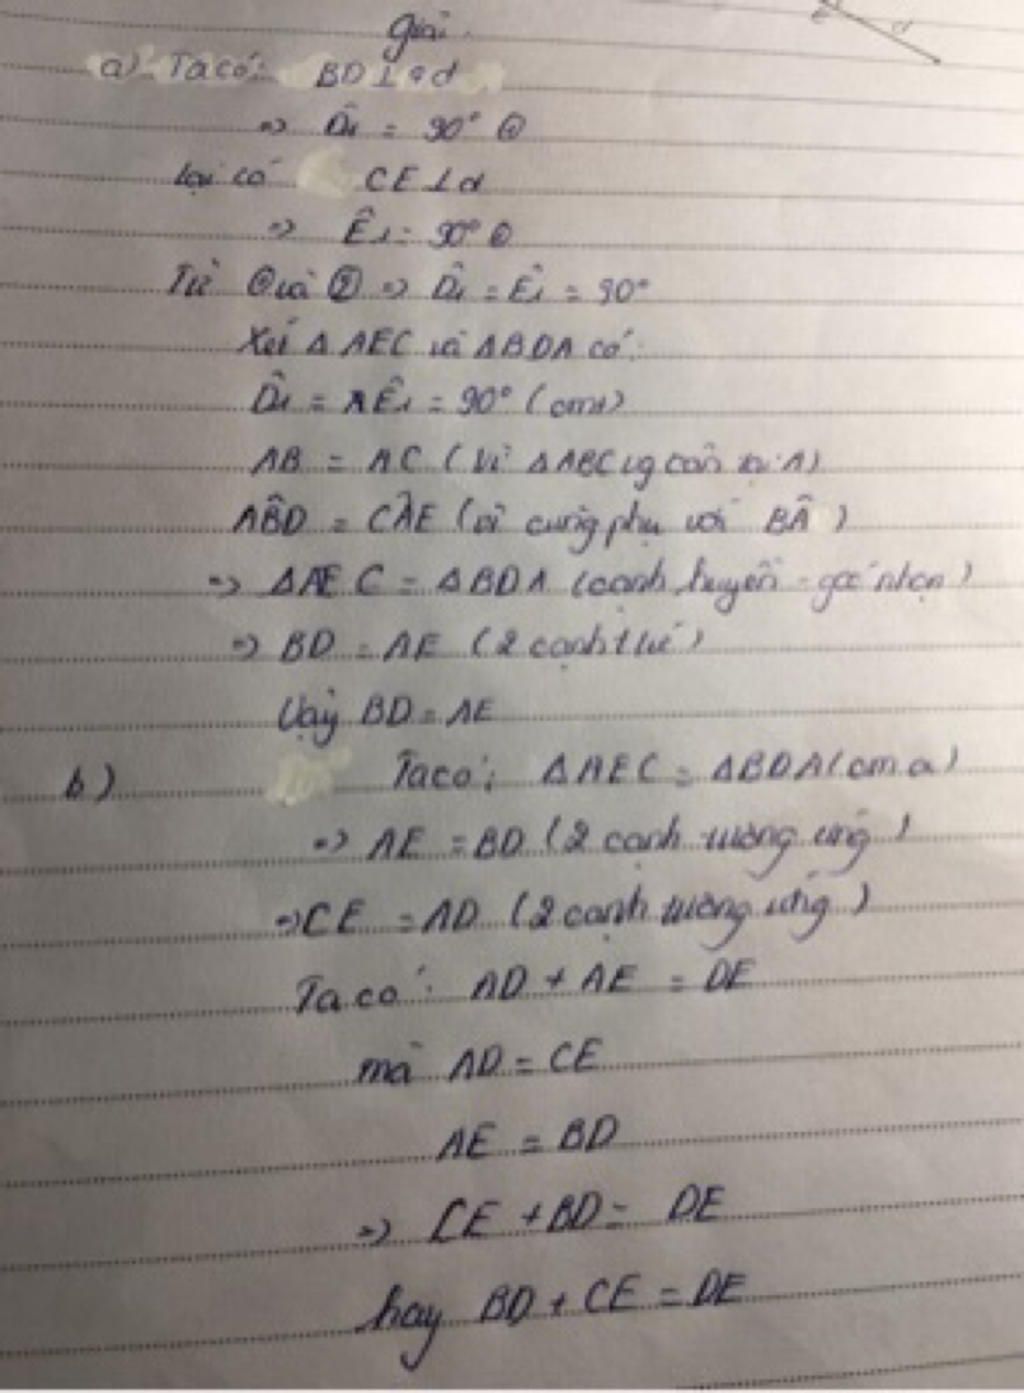 E d
Giải.
a) Ta có: BD ⊥ d
=> D̂₁ = 90° ①
Lại có CE ⊥ d
=> Ê₁ = 90° ②
Từ ① và ② => D̂₁ = Ê₁ = 90°
Xét Δ AEC và ΔBDA có:
D̂₁ = Ê₁ = 90° (cmt)
AB = AC (vì ΔABC vg cân tại A)
AB̂D = CÂE (vì cùng phụ với BÂ )
=> ΔAEC = ΔBDA (cạnh huyền - góc nhọn)
=> BD = AE (2 cạnh t/ư)
Vậy BD = AE
b) Ta có: ΔAEC = ΔBDA (cm a)
=> AE = BD (2 cạnh tương ứng)
=> CE = AD (2 cạnh tương ứng)
Ta có: AD + AE = DE
mà AD = CE
AE = BD
=> CE + BD = DE
hay BD + CE = DE